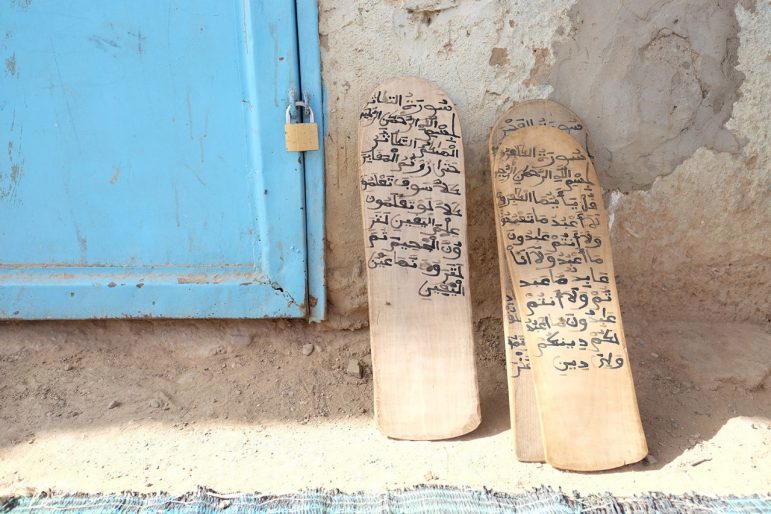 سورة التكاثر
بسم الله الرحمن الرحيم
الهيكم التكاثر
حتى زرتم المقابر
كلا سوف تعلمون
كلا لو تعلمون
علم اليقين لتر
ون الجحيم ثم
لترونها عين
اليقين
سورة
سورة الكافرون
بسم الله الرحمن الرحيم
قل يا أيها الكافرون
لا أعبد ما تعبدون
ولا أنتم عابدون
ما أعبد ولا أنا
عابد ما عبد
تم ولا أنتم
عابدون ما أعبد
لكم دينكم
ولي دين